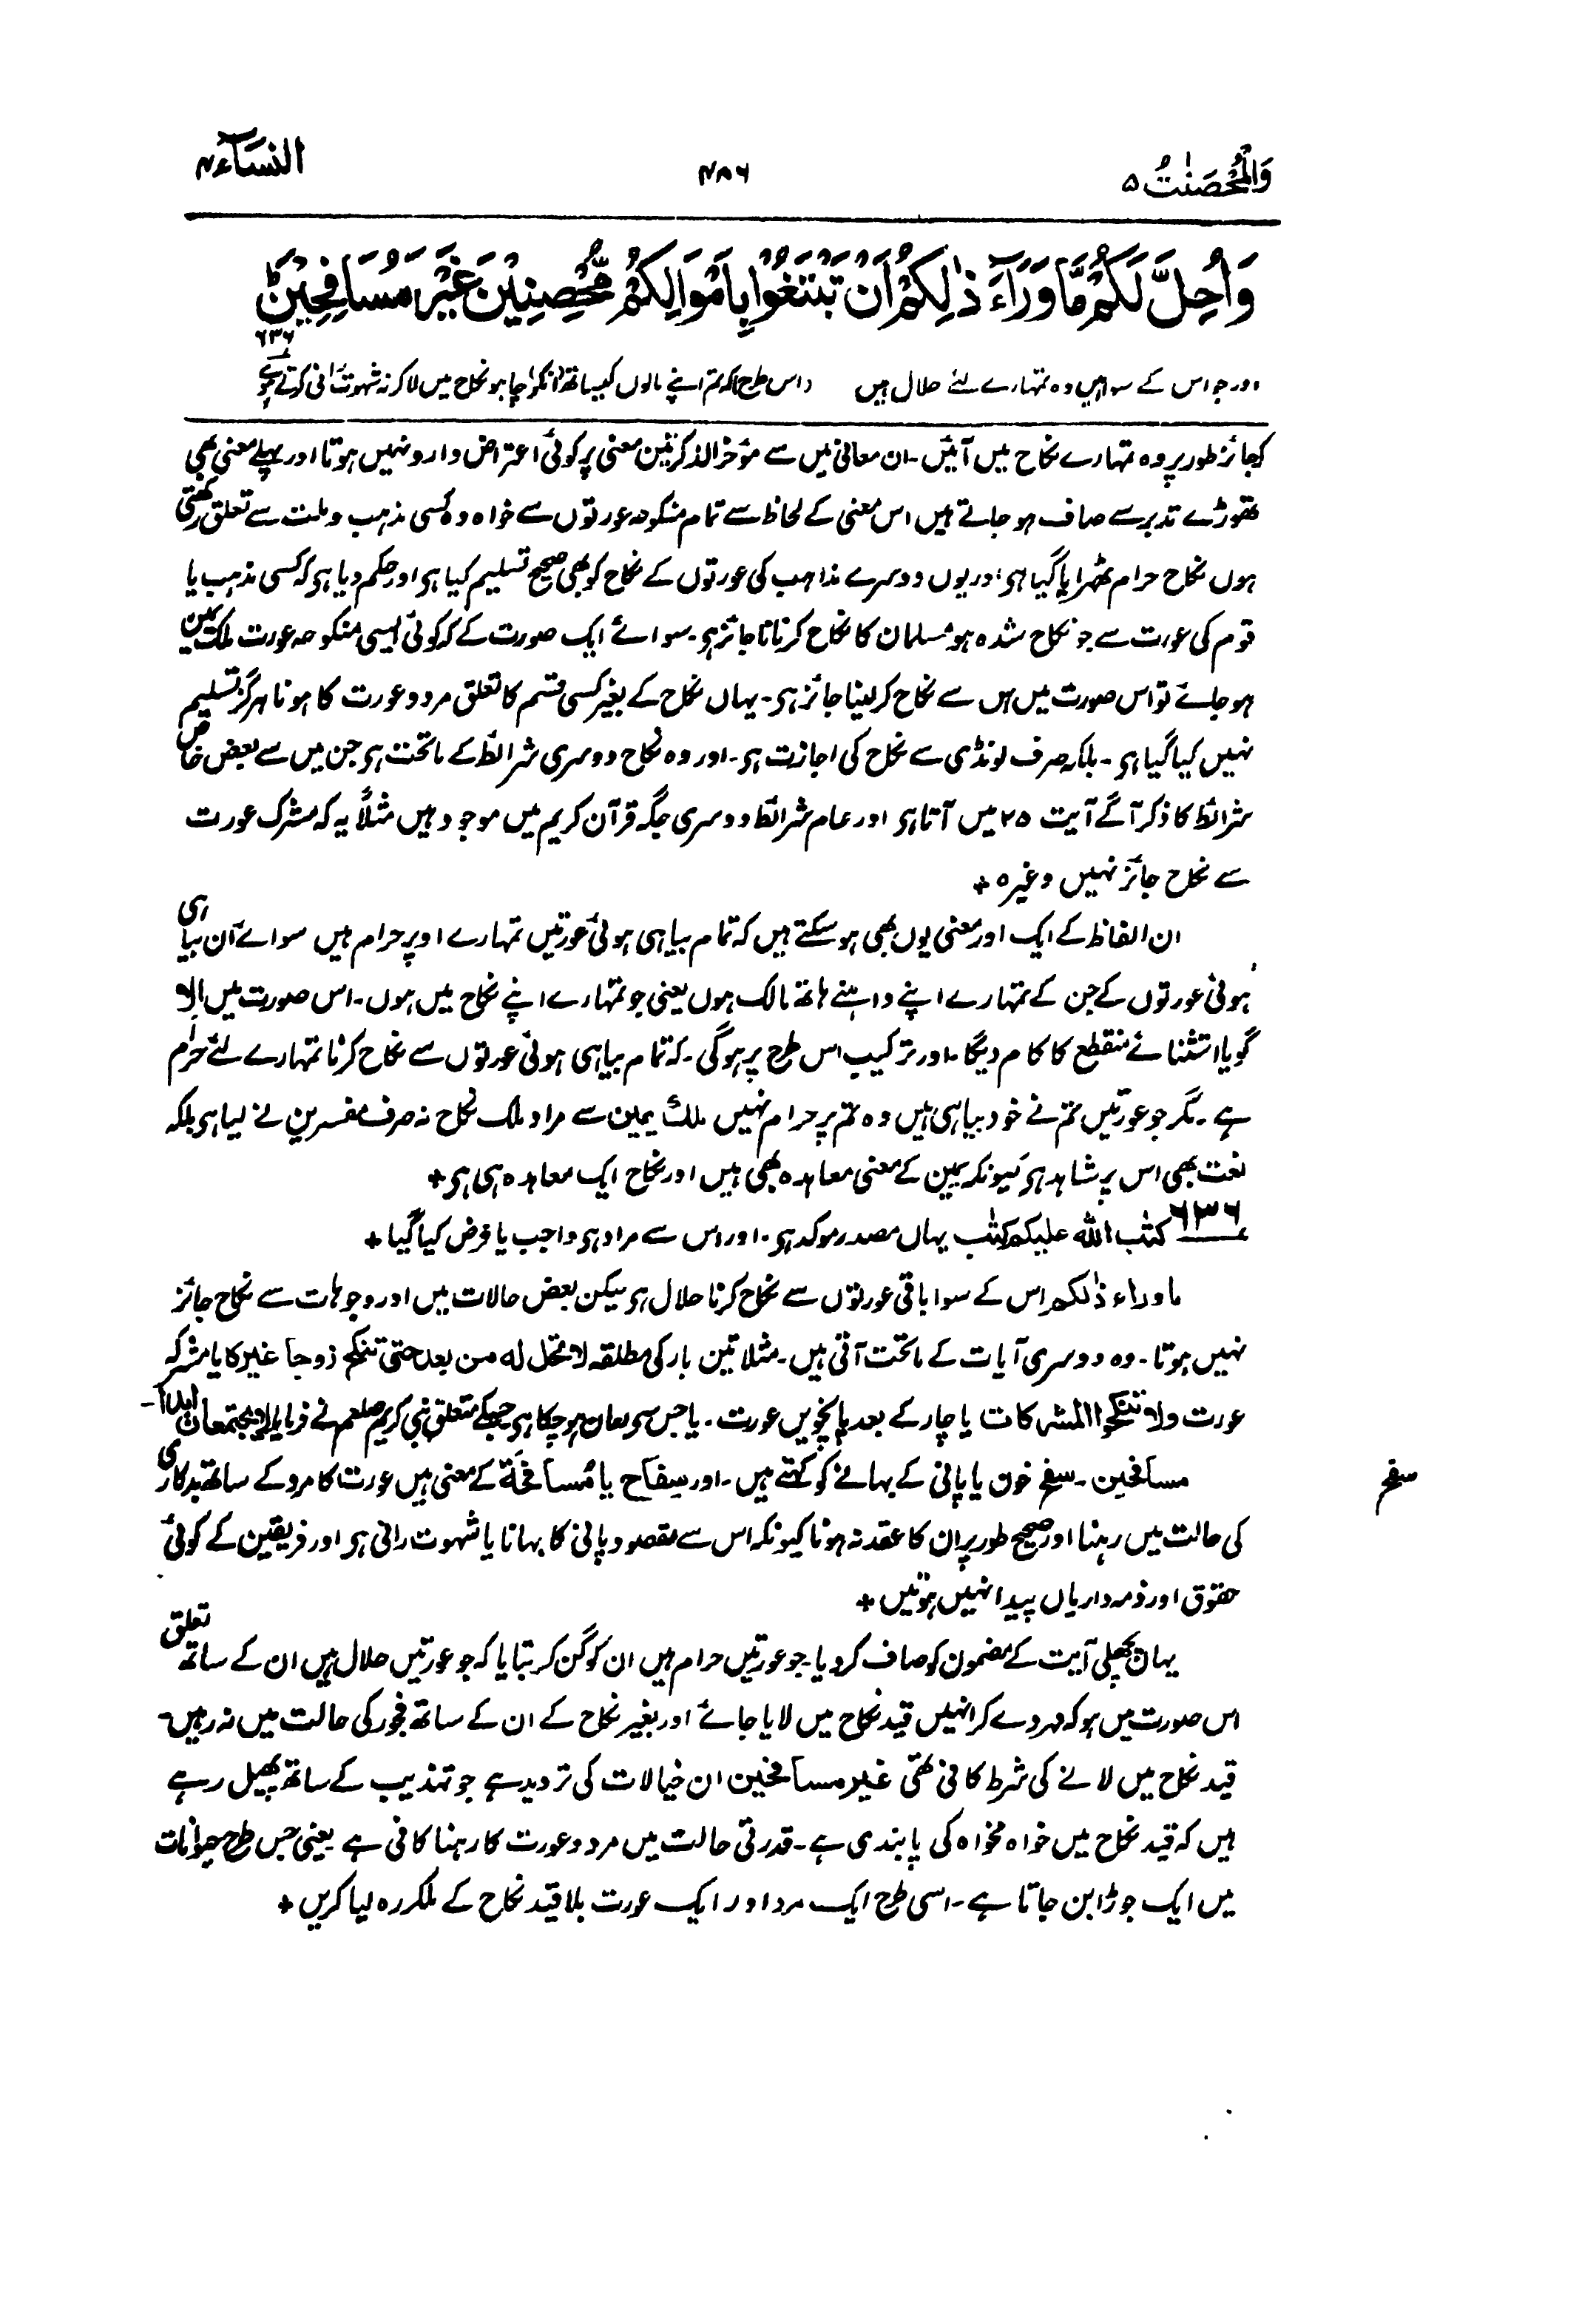 وَالْمُحْصَنٰتُ ۵
۴۸۶
النسآء ۴
وَاُحِلَّ لَكُمْ مَّا وَرَآءَ ذٰلِكُمْ اَنْ تَبْتَغُوْا بِاَمْوَالِكُمْ مُّحْصِنِيْنَ غَيْرَ مُسَافِحِيْنَ ؕ
۶۳۶
اور جو اس کے سوا ہیں وہ تمہارے لئے حلال ہیں (اس طرح) کہ تم اپنے مالوں کیساتھ انکو چاہو نکاح میں لاکر نہ شہوت رانی کرتے ہوئے
کہ جائز طور پر وہ تمہارے نکاح میں آئیں۔ ان معانی میں سے مؤخر الذکر تین معنی پر کوئی اعتراض وارد نہیں ہوتا اور پہلے معنی بھی
تھوڑے تدبر سے صاف ہو جاتے ہیں اس معنی کے لحاظ سے تمام منکوحہ عورتوں سے خواہ وہ کسی مذہب و ملت سے تعلق رکھتی
ہوں نکاح حرام ٹھہرایا گیا ہی اور یوں دوسرے مذاہب کی عورتوں کے نکاح کو بھی صحیح تسلیم کیا ہی اور حکم دیا ہی کہ کسی مذہب یا
قوم کی عورت سے جو نکاح شدہ ہو مسلمان کا نکاح کرنا ناجائز ہی۔ سوائے ایک صورت کے کہ کوئی ایسی منکوحہ عورت ملک یمین
ہو جائے تو اس صورت میں اس سے نکاح کر لینا جائز ہی۔ یہاں نکاح کے بغیر کسی قسم کا تعلق مرد و عورت کا ہونا ہرگز تسلیم
نہیں کیا گیا ہی۔ بلکہ صرف لونڈی سے نکاح کی اجازت ہی۔ اور وہ نکاح دوسری شرائط کے ماتحت ہی جن میں سے بعض خاص
شرائط کا ذکر آگے آیت ۲۵ میں آتا ہی اور عام شرائط دوسری جگہ قرآن کریم میں موجود ہیں مثلاً یہ کہ مشرک عورت
سے نکاح جائز نہیں وغیرہ +
ان الفاظ کے ایک اور معنی یوں بھی ہو سکتے ہیں کہ تمام بیاہی ہوئی عورتیں تمہارے اوپر حرام ہیں سوائے اُن بیاہی
ہوئی عورتوں کے جن کے تمہارے اپنے داہنے ہاتھ مالک ہوں یعنی جو تمہارے اپنے نکاح میں ہوں۔ اس صورت میں اِلا
گویا استثنائے منقطع کا کام دیگا۔ اور ترکیب اس طرح پر ہوگی۔ کہ تمام بیاہی ہوئی عورتوں سے نکاح کرنا تمہارے لئے حرام
ہے۔ مگر جو عورتیں تم نے خود بیاہی ہیں وہ تم پر حرام نہیں ملک یمین سے مراد ملک نکاح نہ صرف مفسرین نے لیا ہی بلکہ
لغت بھی اس پر شاہد ہی کیونکہ یمین کے معنی معاہدہ بھی ہیں اور نکاح ایک معاہدہ ہی ہی +
۶۳۶ کتٰب اللہ علیکم کتٰب یہاں مصدر موکد ہی۔ اور اس سے مراد ہی واجب یا فرض کیا گیا +
ما وراء ذٰلکم اس کے سوا باقی عورتوں سے نکاح کرنا حلال ہی لیکن بعض حالات میں اور وجوہات سے نکاح جائز
نہیں ہوتا۔ وہ دوسری آیات کے ماتحت آتی ہیں۔ مثلا تین بار کی مطلقہ لا تحل له من بعد حتی تنکح زوجا غیرہ کا یا مشرکہ
عورت ولا تنکحوا المشرکات یا چار کے بعد پانچویں عورت۔ یا جس سے لعان ہو چکا ہی جسکے متعلق نبی کریم صلعم نے فرمایا لا یجتمعان ابدا۔
مسافحین۔ سفح خون یا پانی کے بہانے کو کہتے ہیں۔ اور سِفاح یا مُسافحَة کے معنی ہیں عورت کا مرد کے ساتھ بدکاری
سفح
کی حالت میں رہنا اور صحیح طور پر ان کا عقد نہ ہونا کیونکہ اس سے مقصود پانی کا بہانا یا شہوت رانی ہی اور فریقین کے کوئی
حقوق اور ذمہ داریاں پیدا نہیں ہوتیں +
یہاں پچھلی آیت کے مضمون کو صاف کر دیا۔ جو عورتیں حرام ہیں ان کو گن کر بتایا کہ جو عورتیں حلال ہیں ان کے ساتھ تعلق
اس صورت میں ہو کہ مہر دے کر انہیں قید نکاح میں لایا جائے اور بغیر نکاح کے ان کے ساتھ فجور کی حالت میں نہ رہیں۔
قید نکاح میں لانے کی شرط کافی تھی غیر مسافحین ان خیالات کی تردید ہے جو تہذیب کے ساتھ پھیل رہے
ہیں کہ قید نکاح میں خواہ مخواہ کی پابندی ہے۔ قدرتی حالت میں مرد و عورت کا رہنا کافی ہے یعنی جس طرح حیوانات
میں ایک جوڑا بن جاتا ہے۔ اسی طرح ایک مرد اور ایک عورت بلا قید نکاح کے ملکر رہ لیا کریں +